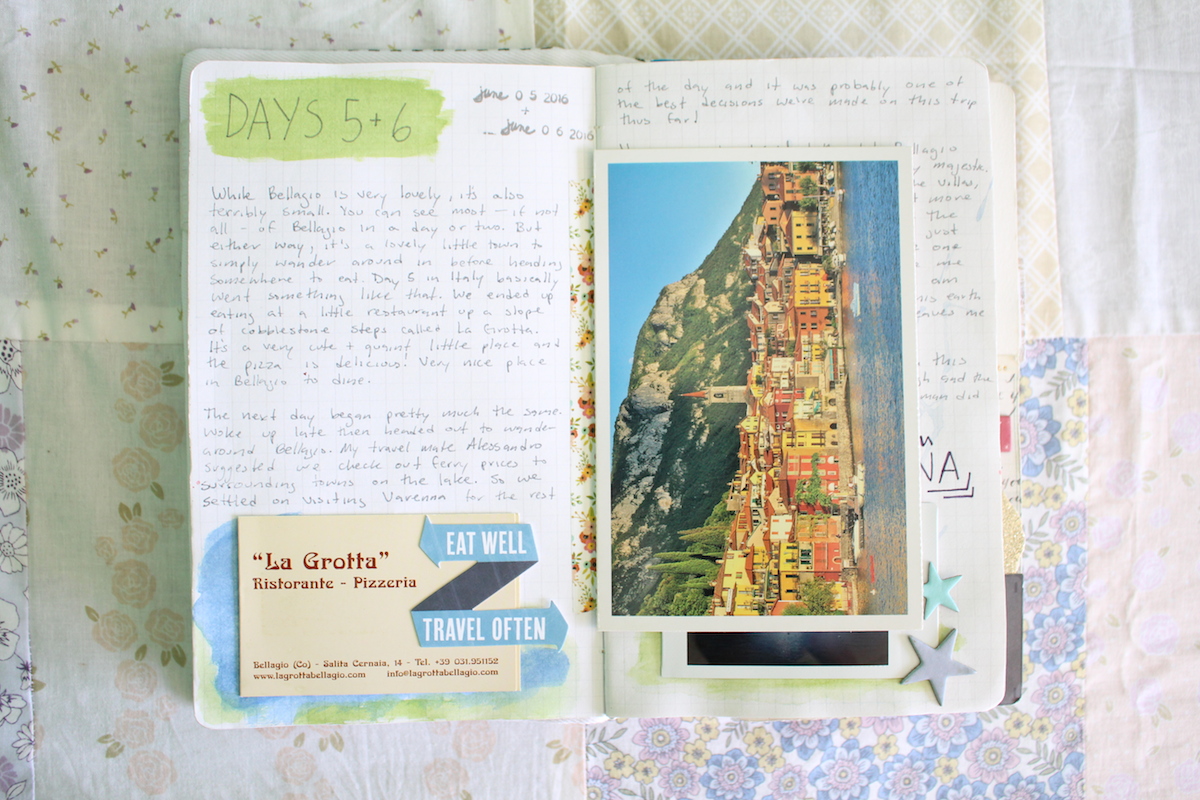 DAYS 5+6
june 05 2016
+
june 06 2016
While Bellagio is very lovely, it's also
terribly small. You can see most – if not
all – of Bellagio in a day or two. But
either way, it's a lovely little town to
simply wander around in before heading
somewhere to eat. Day 5 in Italy basically
went something like that. We ended up
eating at a little restaurant up a slope
of cobblestone steps called La Grotta.
It's a very cute + quaint little place and
the pizza is delicious! Very nice place
in Bellagio to dine.
The next day began pretty much the same.
Woke up late then headed out to wander
around Bellagio. My travel mate Alessandro
suggested we check out ferry prices to
surrounding towns on the lake. So we
settled on visiting Varenna for the rest
"La Grotta"
Ristorante - Pizzeria
Bellagio (Co) - Salita Cernaia, 14 - Tel. +39 031.951152
www.lagrottabellagio.com info@lagrottabellagio.com
EAT WELL
TRAVEL OFTEN
of the day and it was probably one of
the best decisions we've made on this trip
thus far!
Bellagio
majestic
villas,
more
The
just
one
me
am
this earth
leaves me
this
sad the
man did
NA,